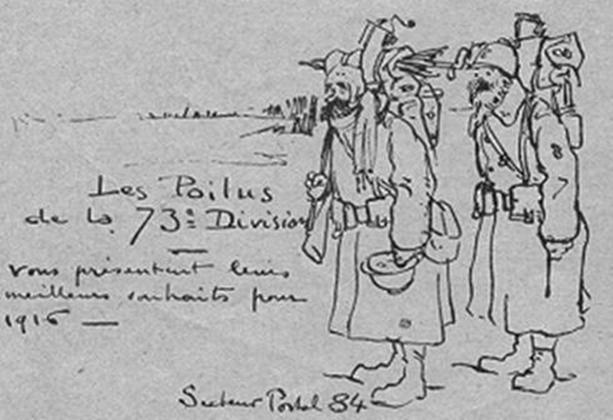 Les Poilus
de la 73e Division
vous présentent leurs
meilleurs souhaits pour
1916 —
Secteur Postal 84